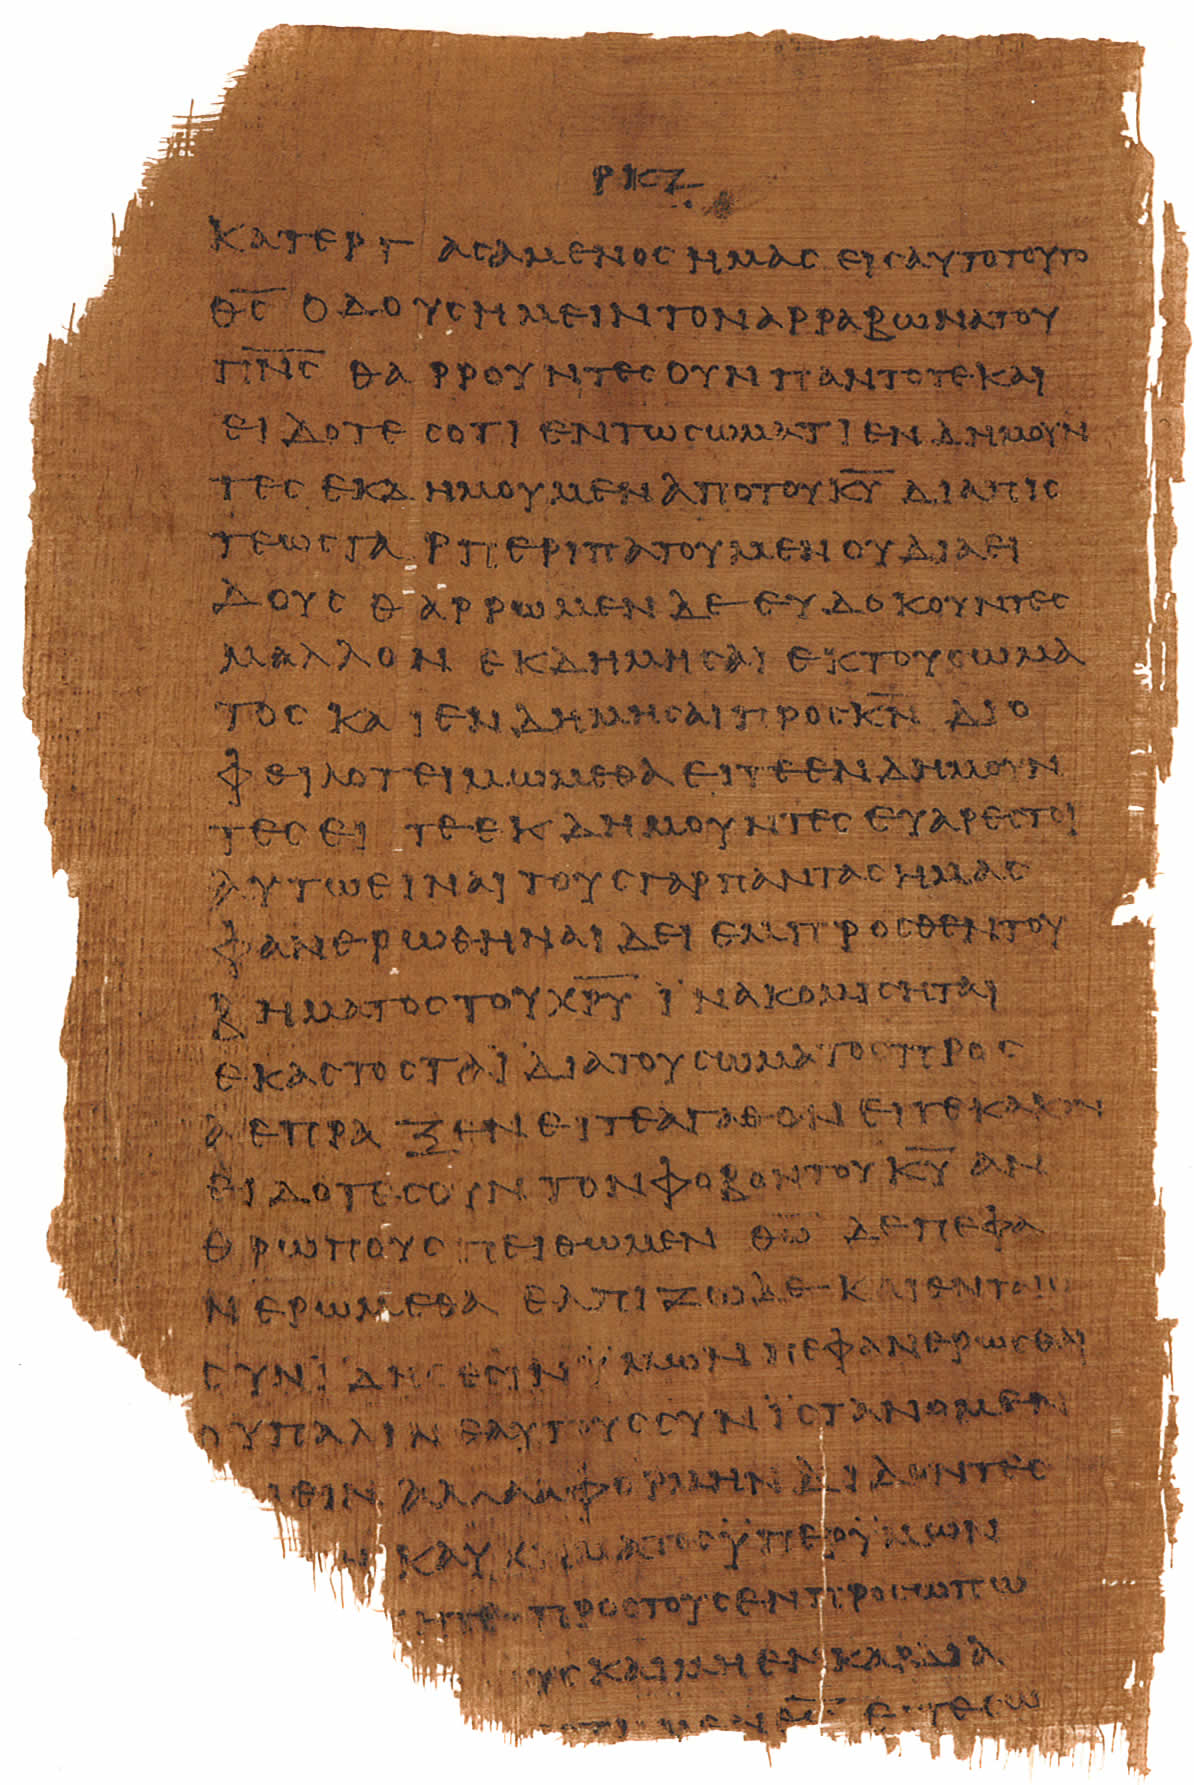 ΡΚΖ
ΚΑΤΕΡΓΑΣΑΜΕΝΟΣ ΗΜΑΣ ΕΙΣ ΑΥΤΟ ΤΟΥΤΟ
Θ̅Σ̅ Ο ΔΟΥΣ ΗΜΕΙΝ ΤΟΝ ΑΡΡΑΒΩΝΑ ΤΟΥ
Π̅Ν̅Σ̅ ΘΑΡΡΟΥΝΤΕΣ ΟΥΝ ΠΑΝΤΟΤΕ ΚΑΙ
ΕΙΔΟΤΕΣ ΟΤΙ ΕΝ ΤΩ ΣΩΜΑΤΙ ΕΝΔΗΜΟΥΝ
ΤΕΣ ΕΚΔΗΜΟΥΜΕΝ ΑΠΟ ΤΟΥ Κ̅Υ̅ ΔΙΑ ΠΙΣ
ΤΕΩΣ ΓΑΡ ΠΕΡΙΠΑΤΟΥΜΕΝ ΟΥ ΔΙΑ ΕΙ
ΔΟΥΣ ΘΑΡΡΩΜΕΝ ΔΕ ΕΥΔΟΚΟΥΝΤΕΣ
ΜΑΛΛΟΝ ΕΚΔΗΜΗΣΑΙ ΕΚ ΤΟΥ ΣΩΜΑ
ΤΟΣ ΚΑΙ ΕΝΔΗΜΗΣΑΙ ΠΡΟΣ Κ̅Ν̅ ΔΙΟ
ΦΕΙΛΟΤΕΙΜΩΜΕΘΑ ΕΙΤΕ ΕΝΔΗΜΟΥΝ
ΤΕΣ ΕΙΤΕ ΕΚΔΗΜΟΥΝΤΕΣ ΕΥΑΡΕΣΤΟΙ
ΑΥΤΩ ΕΙΝΑΙ ΤΟΥΣ ΓΑΡ ΠΑΝΤΑΣ ΗΜΑΣ
ΦΑΝΕΡΩΘΗΝΑΙ ΔΕΙ ΕΜΠΡΟΣΘΕΝ ΤΟΥ
ΒΗΜΑΤΟΣ ΤΟΥ Χ̅Ρ̅Υ̅ ΪΝΑ ΚΟΜΙΣΗΤΑΙ
ΕΚΑΣΤΟΣ ΤΑ ΪΔΙΑ ΤΟΥ ΣΩΜΑΤΟΣ ΠΡΟΣ
Α ΕΠΡΑΞΕΝ ΕΙΤΕ ΑΓΑΘΟΝ ΕΙΤΕ ΚΑΚΟΝ
ΕΙΔΟΤΕΣ ΟΥΝ ΤΟΝ ΦΟΒΟΝ ΤΟΥ Κ̅Υ̅ ΑΝ
ΘΡΩΠΟΥΣ ΠΕΙΘΩΜΕΝ Θ̅Ω̅ ΔΕ ΠΕΦΑ
ΝΕΡΩΜΕΘΑ ΕΛΠΙΖΩ ΔΕ ΚΑΙ ΕΝ ΤΑΙΣ
ΣΥΝΪΔΗΣΕΣΙΝ ΫΜΩΝ ΠΕΦΑΝΕΡΩΣΘΑΙ
ΟΥ ΠΑΛΙΝ ΕΑΥΤΟΥΣ ΣΥΝΪΣΤΑΝΟΜΕΝ
ΑΛΛΑ ΑΦΟΡΜΗΝ ΔΙΔΟΝΤΕΣ
ΚΑΥΧΗΜΑΤΟΣ ΫΠΕΡ ΫΜΩΝ
ΗΤΕ ΠΡΟΣ ΤΟΥΣ ΕΝ ΠΡΟΣΩΠΩ
ΥΣ ΚΑΙ ΜΗ ΕΝ ΚΑΡΔΙΑ